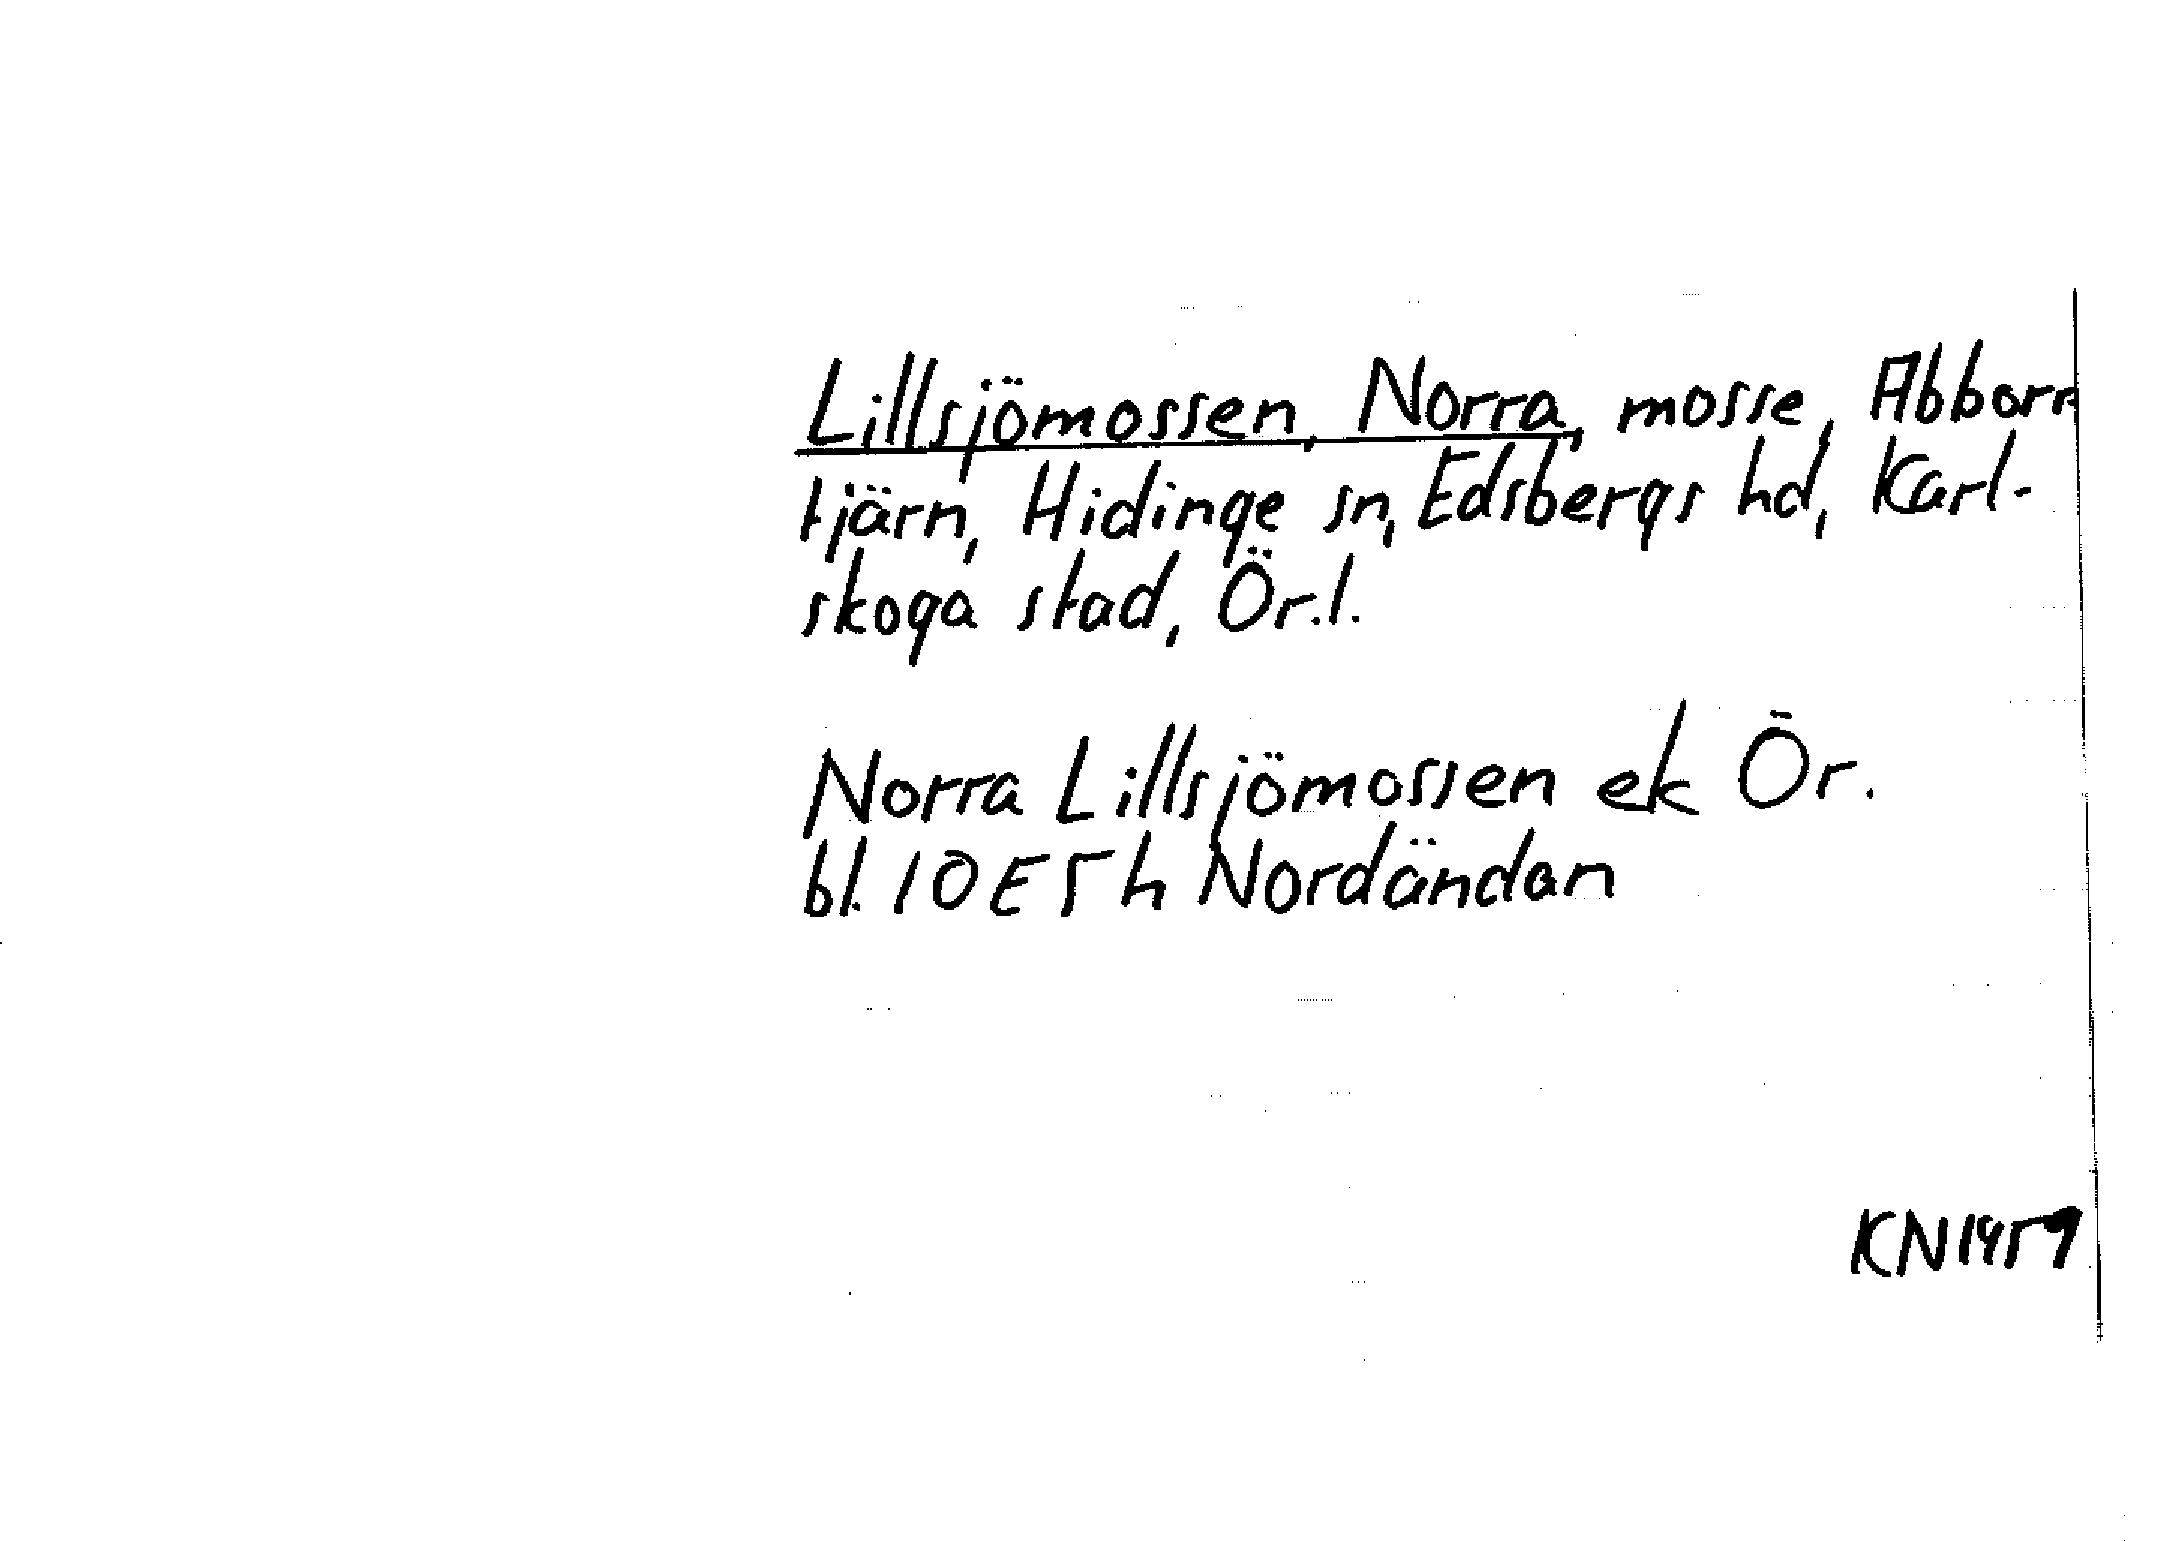 Lillsjömossen, Norra, mosse, Abborr
tjärn, Hidinge sn, Edsbergs hd, Karl-
skoga stad, Ör.l.
Norra Lillsjömossen ek Ör.
bl. 10E5h Nordändan
KN1959